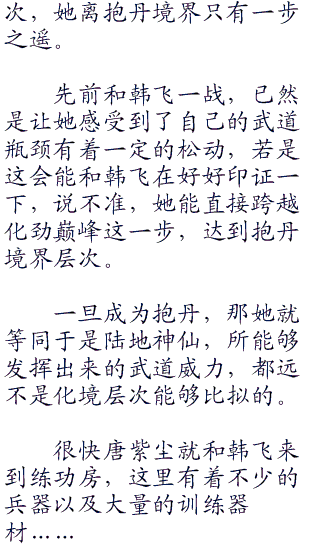 次，她离抱丹境界只有一步
之遥。
先前和韩飞一战，已然
是让她感受到了自己的武道
瓶颈有着一定的松动，若是
这会能和韩飞在好好印证一
下，说不准，她能直接跨越
化劲巅峰这一步，达到抱丹
境界层次。
一旦成为抱丹，那她就
等同于是陆地神仙，所能够
发挥出来的武道威力，都远
不是化境层次能够比拟的。
很快唐紫尘就和韩飞来
到练功房，这里有着不少的
兵器以及大量的训练器
材……